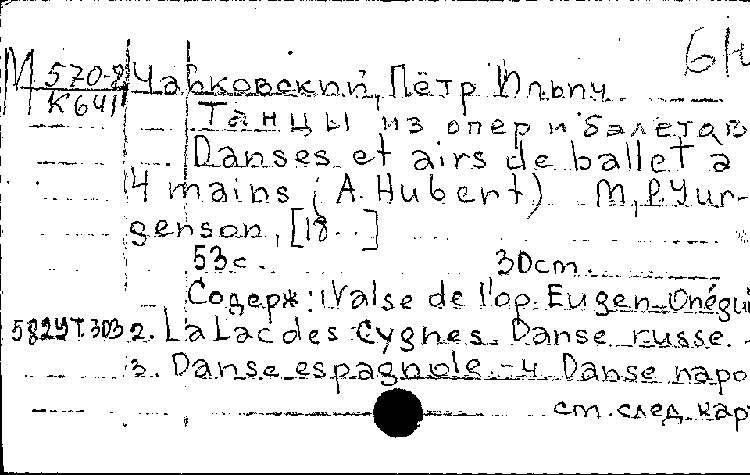 М 570-8 Чайковский, Пётр Ильич
К641 Танцы из опер и балетов
Danses et airs de ballet à
4 mains (A. Hubert) M, P. Yur-
genson, [18..]
53с. 30cm.
Содерж: 1 Valse de l'op. Eugen Onégui
582УТ.303 2. La Lac des Cygnes. Danse russe. -
3. Danse espagnole. - 4 Danse napo
ст. след. кар